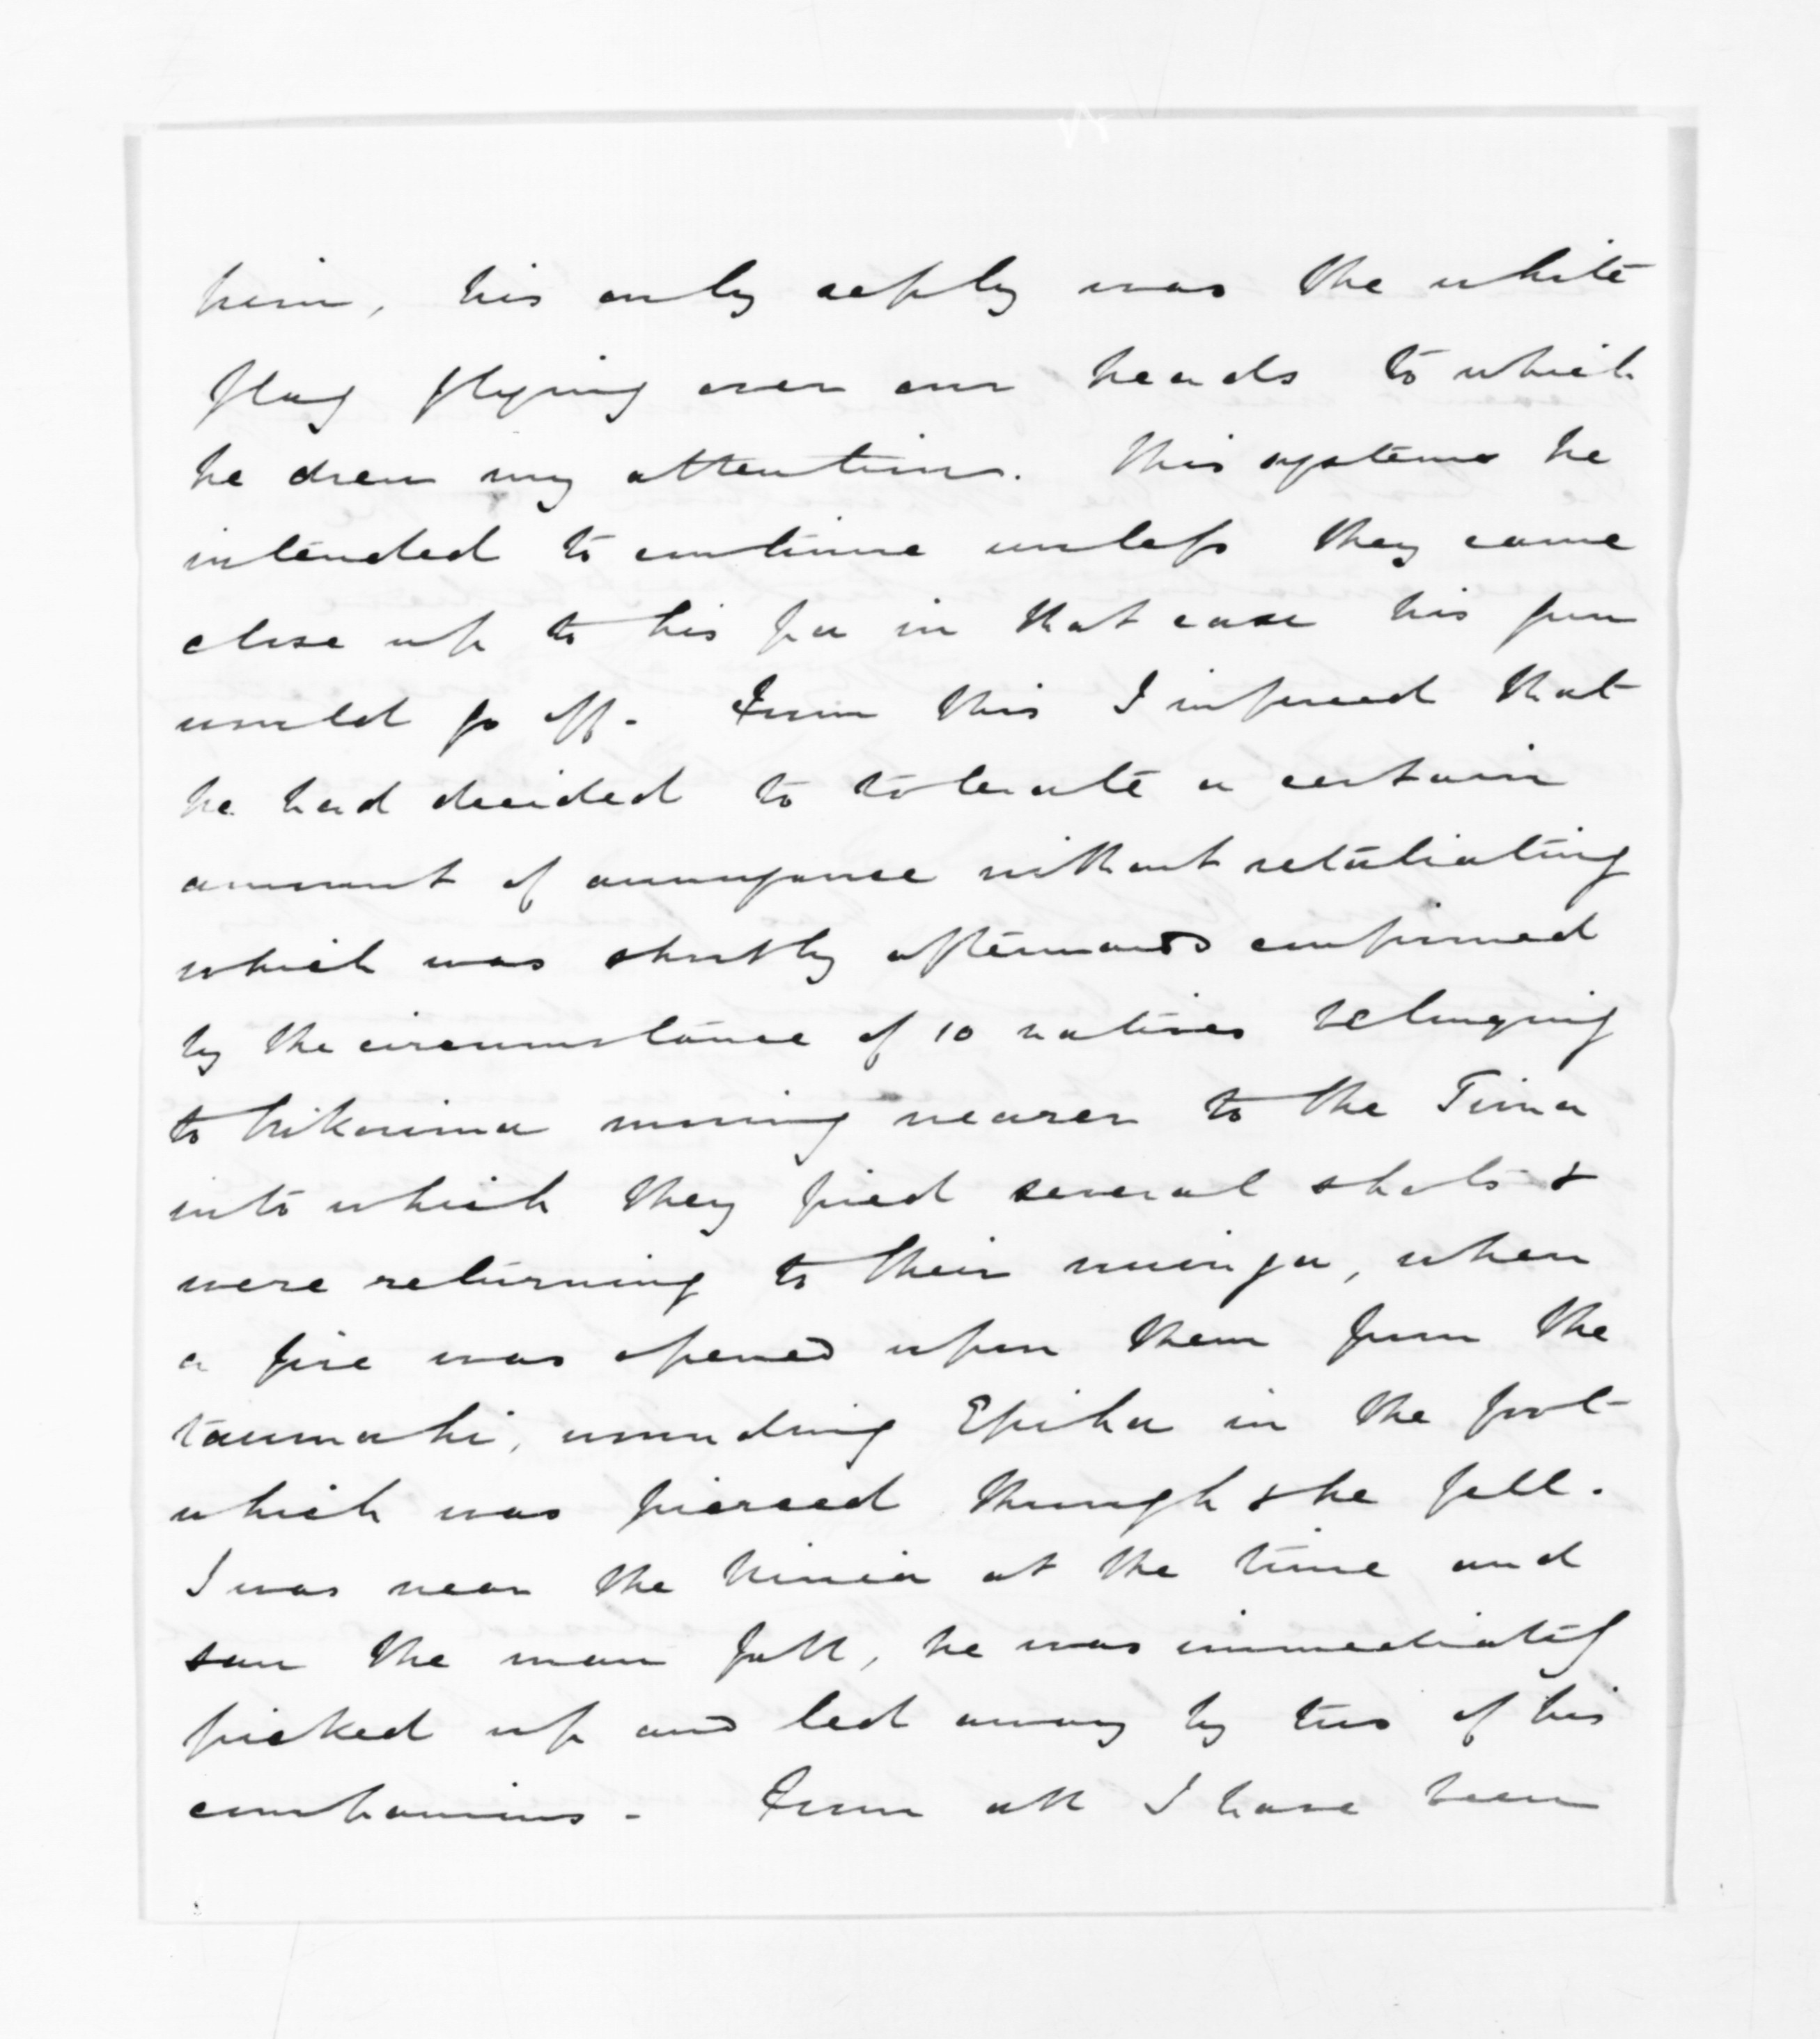 him, his only reply was the white
flag flying over our heads to which
he drew my attention. This system he
intended to continue unless they came
close up to his pa in that case his gun
would go off. From this I infered that
he had decided to tolerate a certain
amount of annoyance without retaliating
which was shortly afterwards confirmed
by the circumstance of 10 natives belonging
to moving nearer to the
into which they fired several shots &
were returning to their main pa, when
a fire was opened upon them from the
taumahi, wounding Epiha in the foot
which was pierced through & he fell.
I was near the Ninia at the time and
saw the man fall, he was immediately
picked up and led away by two of his
companions. From all I have been